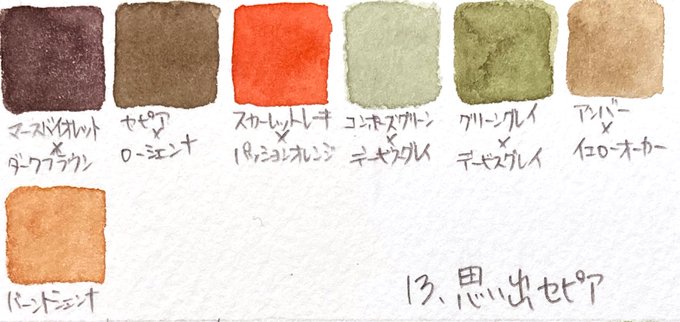 マースバイオレット
×
ダークブラウン
セピア
×
ローシェンナ
スカーレットレーキ
×
パッションオレンジ
コンポーズグリーン
×
デービスグレイ
グリーングレイ
×
デービスグレイ
アンバー
×
イエローオーカー
バーントシェンナ
13、思い出セピア